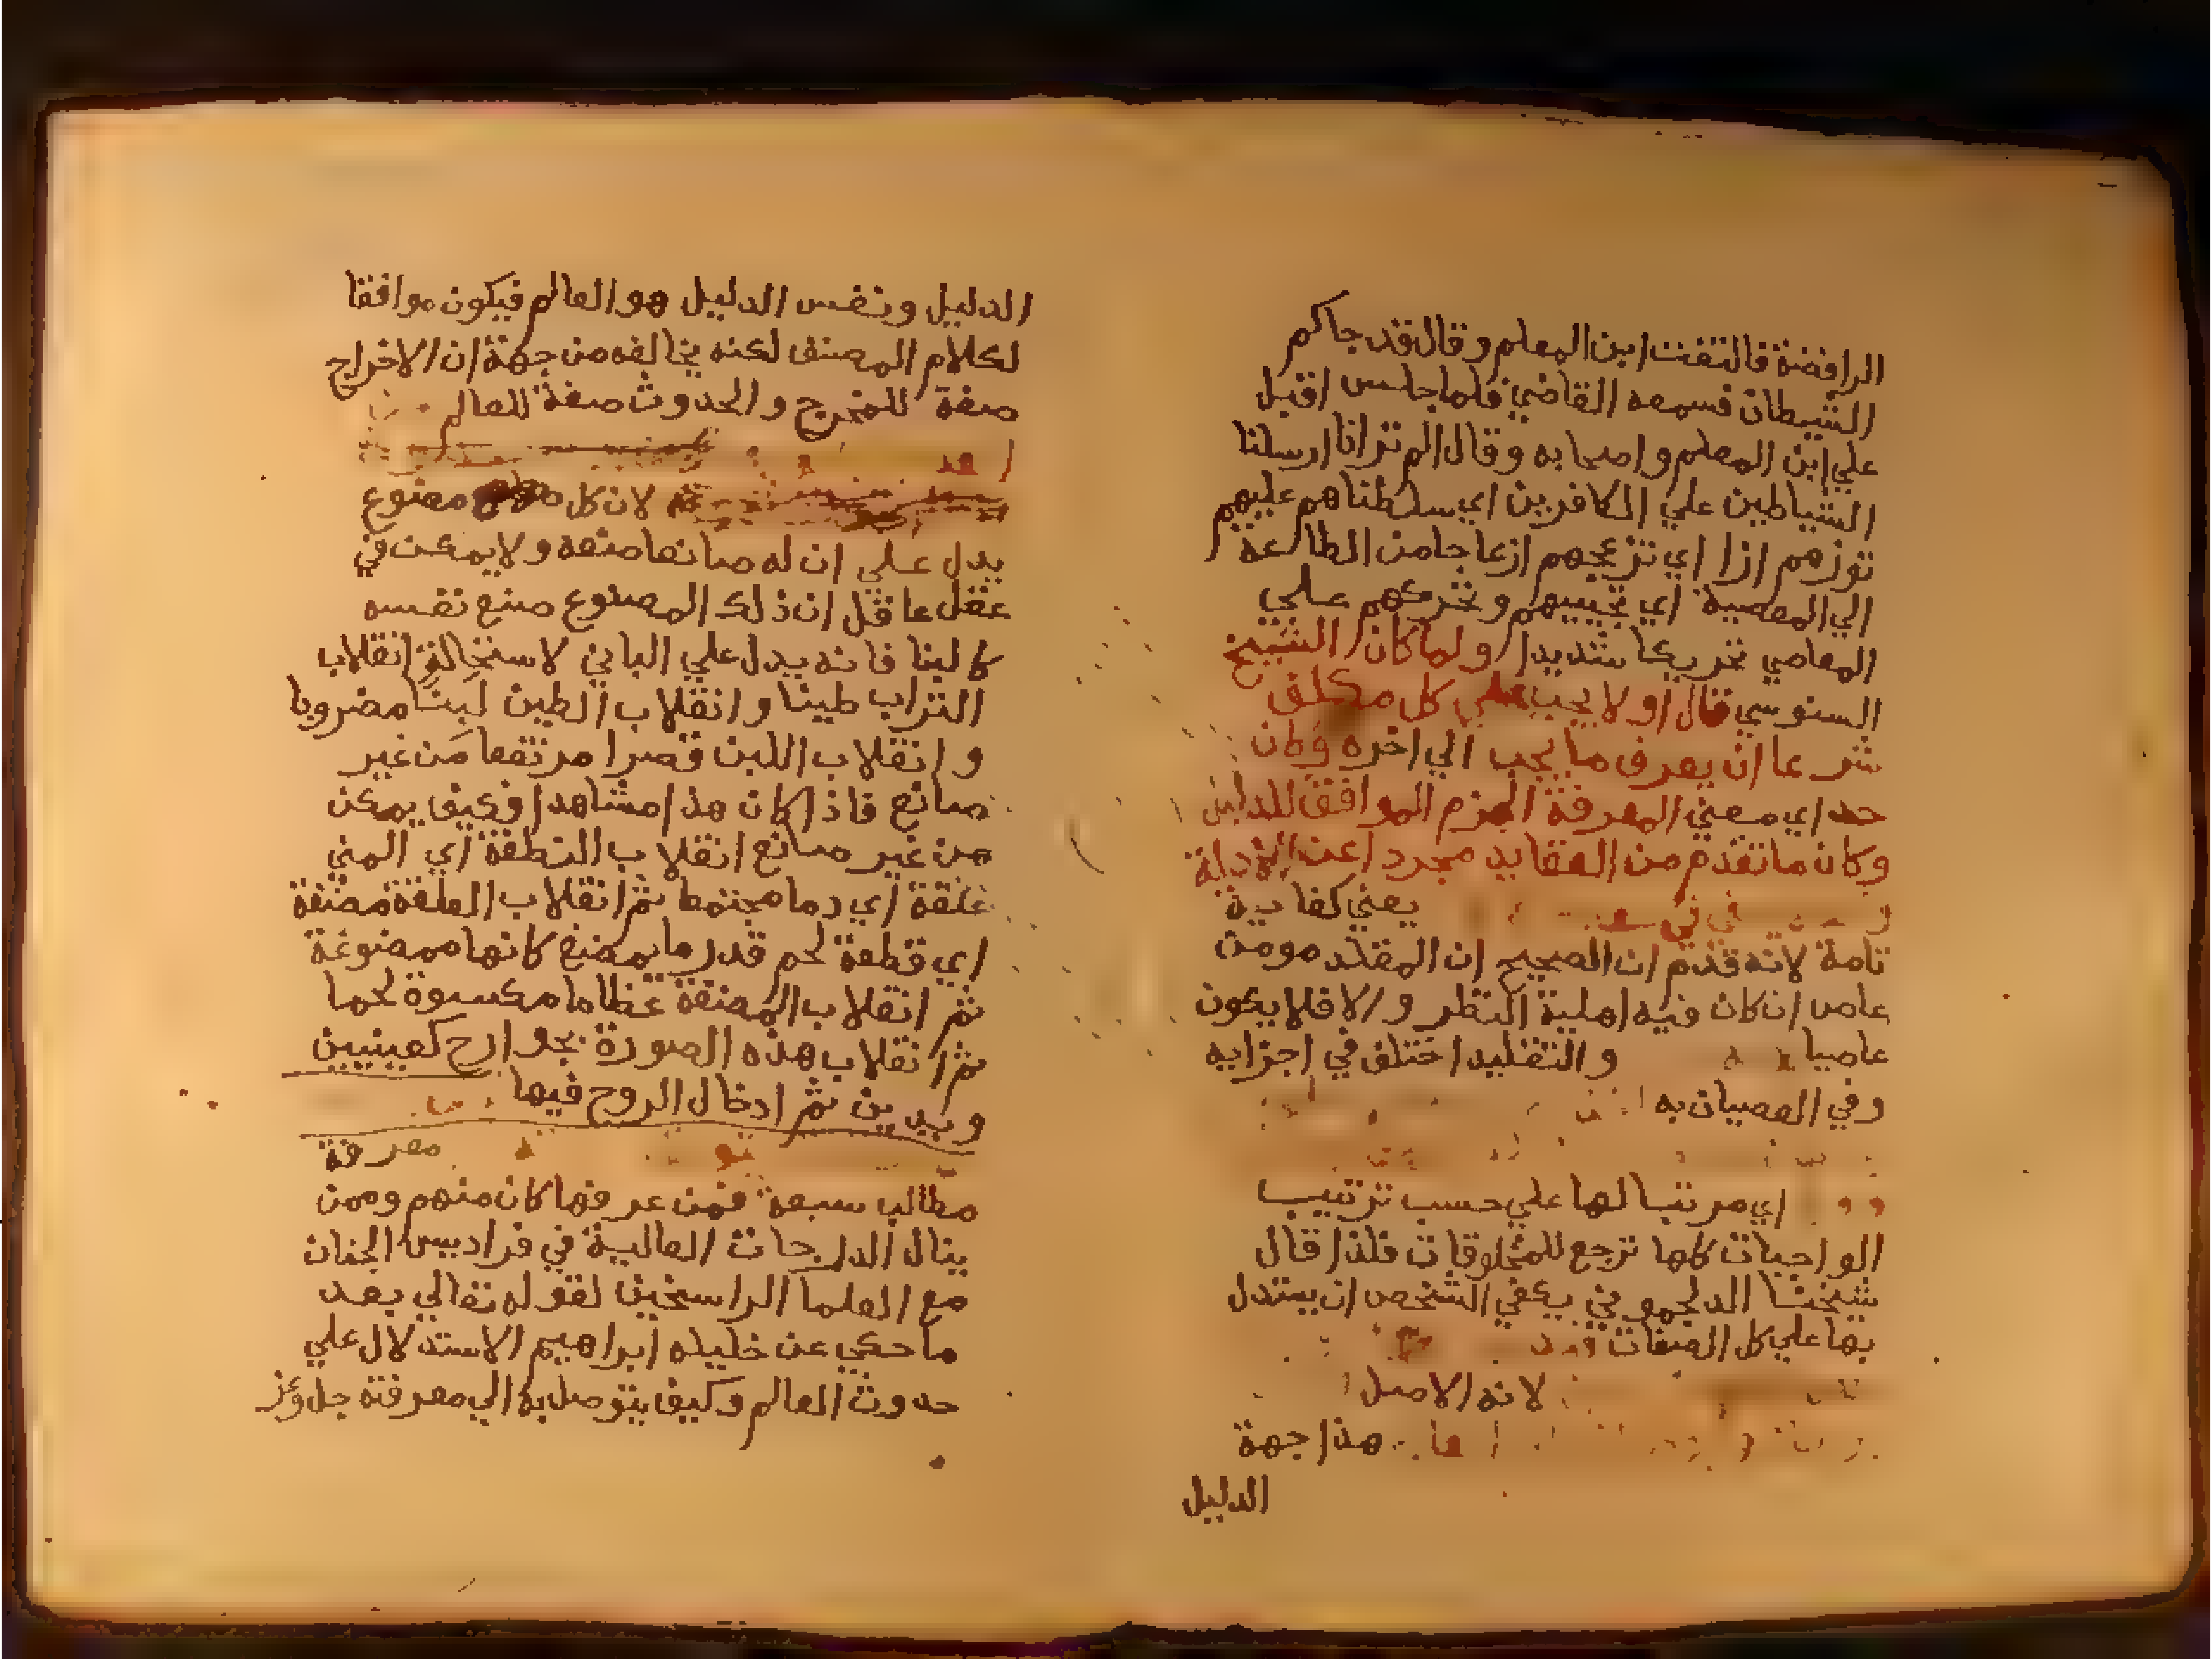 الرافضة فالتفت ابن المعلم وقال قد جاكم
الشيطان فسمعه القاضي فلما جلس اقبل
علي ابن المعلم واصحابه وقال الم تر انا ارسلنا
الشياطين علي الكافرين اي سلطناهم عليهم
توزهم ازا اي تزعجهم ازعاجا من الطاعة
الي المعصية اي تحركهم علي
المعاصي تحريكا شديدا ولما كان الشيخ
السنوسي قال او لا يجب علي كل مكلف
شرعا ان يعرف ما يجب الي اخره وكان
حد اي معني المعرفة الجزم الموافق للدليل
وكان ما تقدم من العقايد مجردا عن الادلة
يعني كفاية
تامة لانه قدم ان الصحيح ان المقلد مومن
عاص ان كان فيه اهلية النظر والا فلا يكون
عاصيا والتقليد اختلف في اجزايه
وفي العصيان به
اي مرتبا لها علي حسب ترتيب
الواجبات كلها ترجع للمخلوقات فلذا قال
شيخنا الدلجموني يكفي الشخص ان يستدل
بها علي كل الصفات
لانه الاصل
هذا جهة
الدليل
الدليل ونفس الدليل هو العالم فيكون موافقا
لكلام المصنف لكنه يخالفه من جهة ان الاخراج
صفة للمخرج والحدوث صفة للعالم
لان كل مصنوع
يدل علي ان له صانعا صنعه ولا يمكن في
عقل عاقل ان ذلك المصنوع صنع نفسه
كالبنا فانه يدل علي الباني لاستحالة انقلاب
التراب طينا وانقلاب الطين لبنا مضروبا
وانقلاب اللبن قصرا مرتفعا من غير
صانع فاذا كان هذا مشاهدا فكيف يمكن
من غير صانع انقلاب النطفة اي المني
علقة اي دما مجتمعا ثم انقلاب العلقة مضغة
اي قطعة لحم قدر ما يمضغ كانها ممضوغة
ثم انقلاب المضغة عظاما مكسوة لحما
ثم انقلاب هذه الصورة بجوارح كعينين
ويدين ثم ادخال الروح فيها
معرفة
مطالب سبعة فمن عرفها كان منهم وممن
ينال الدرجات العالية في فراديس الجنان
مع العلما الراسخين لقوله تعالي بعد
ما حكي عن خليله ابراهيم الاستدلال علي
حدوث العالم وكيف يتوصل به الي معرفته جل وعز